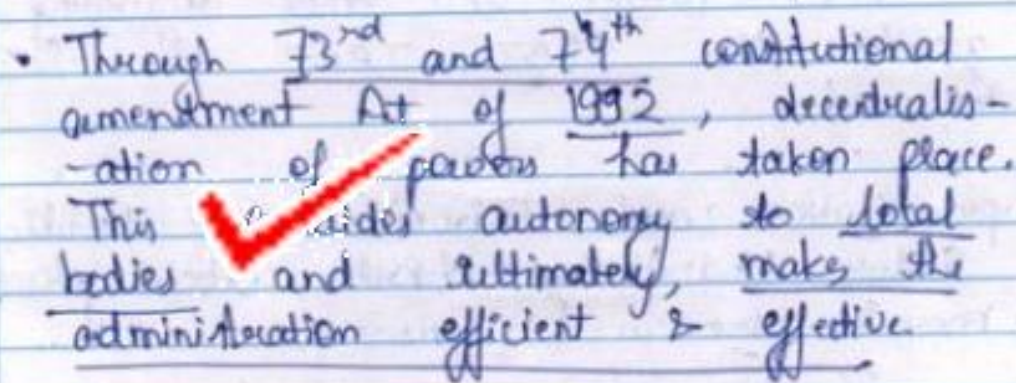 • Through 73rd and 74th constitutional
amendment Act of 1992, decentralis-
-ation of powers has taken place.
This autonomy to local
bodies and ultimately, makes the
administration efficient & effective.